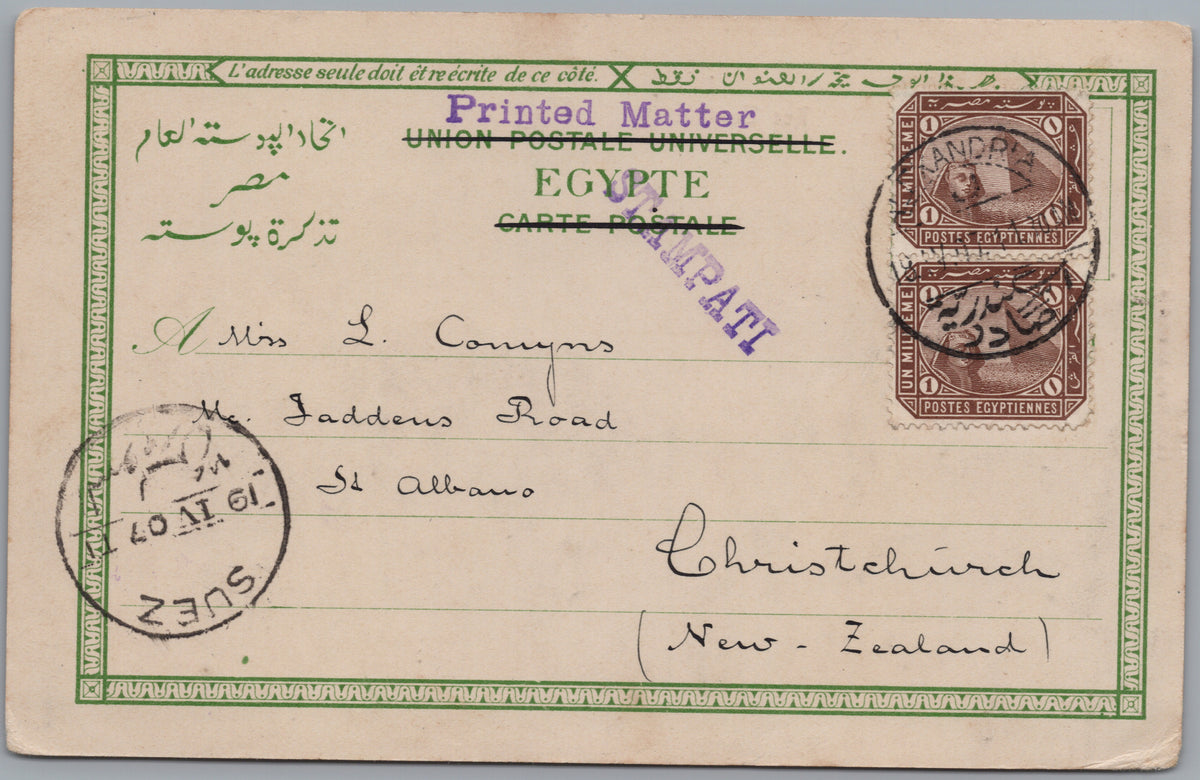 L'adresse seule doit être écrite de ce côté.
Printed Matter
UNION POSTALE UNIVERSELLE.
EGYPTE
CARTE POSTALE
STAMPATI
اتحاد البوسته العام
مصر
تذكرة بوسته
بوسته مصريه
UN MILLIEME
1
POSTES EGYPTIENNES
بوسته مصريه
UN MILLIEME
1
POSTES EGYPTIENNES
A Miss L. Comyns
Mc. Faddens Road
St Albans
Christchurch
(New-Zealand)
SUEZ
19 IV 07